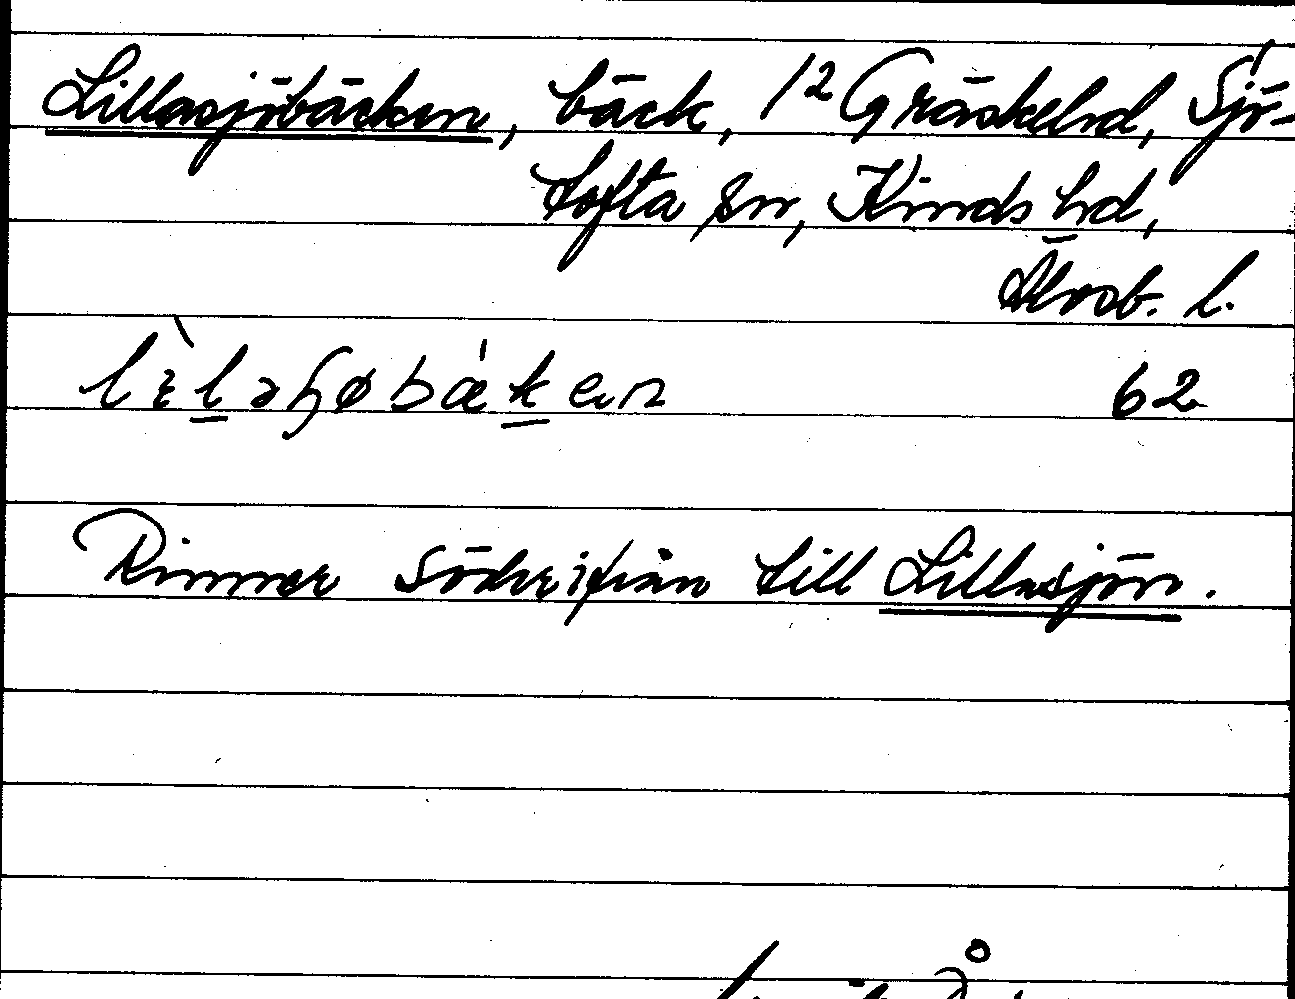 Lillasjöbäcken, bäck, 1² Gräskelid, Sjö-
tofta sn, Kinds hd,
Älvsb. l.
lìlaɧøbæken 62
Rinner söderifrån till Lillasjön.